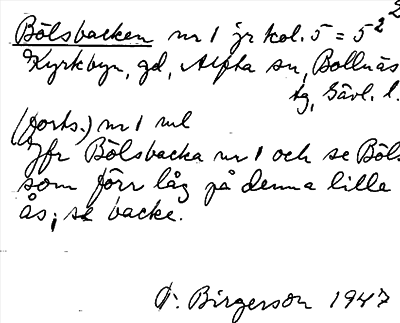 Bölsbacken nr 1 jr kol. 5 = 5² 2
Kyrkbyn, gd, Alfta sn, Bollnäs
tg, Gävl. l.
(forts.) nr 1 ml
Jfr Bölsbacka nr 1 och se Böls
som förr låg på denna lille
ås; se backe.
V. Birgerson 1947